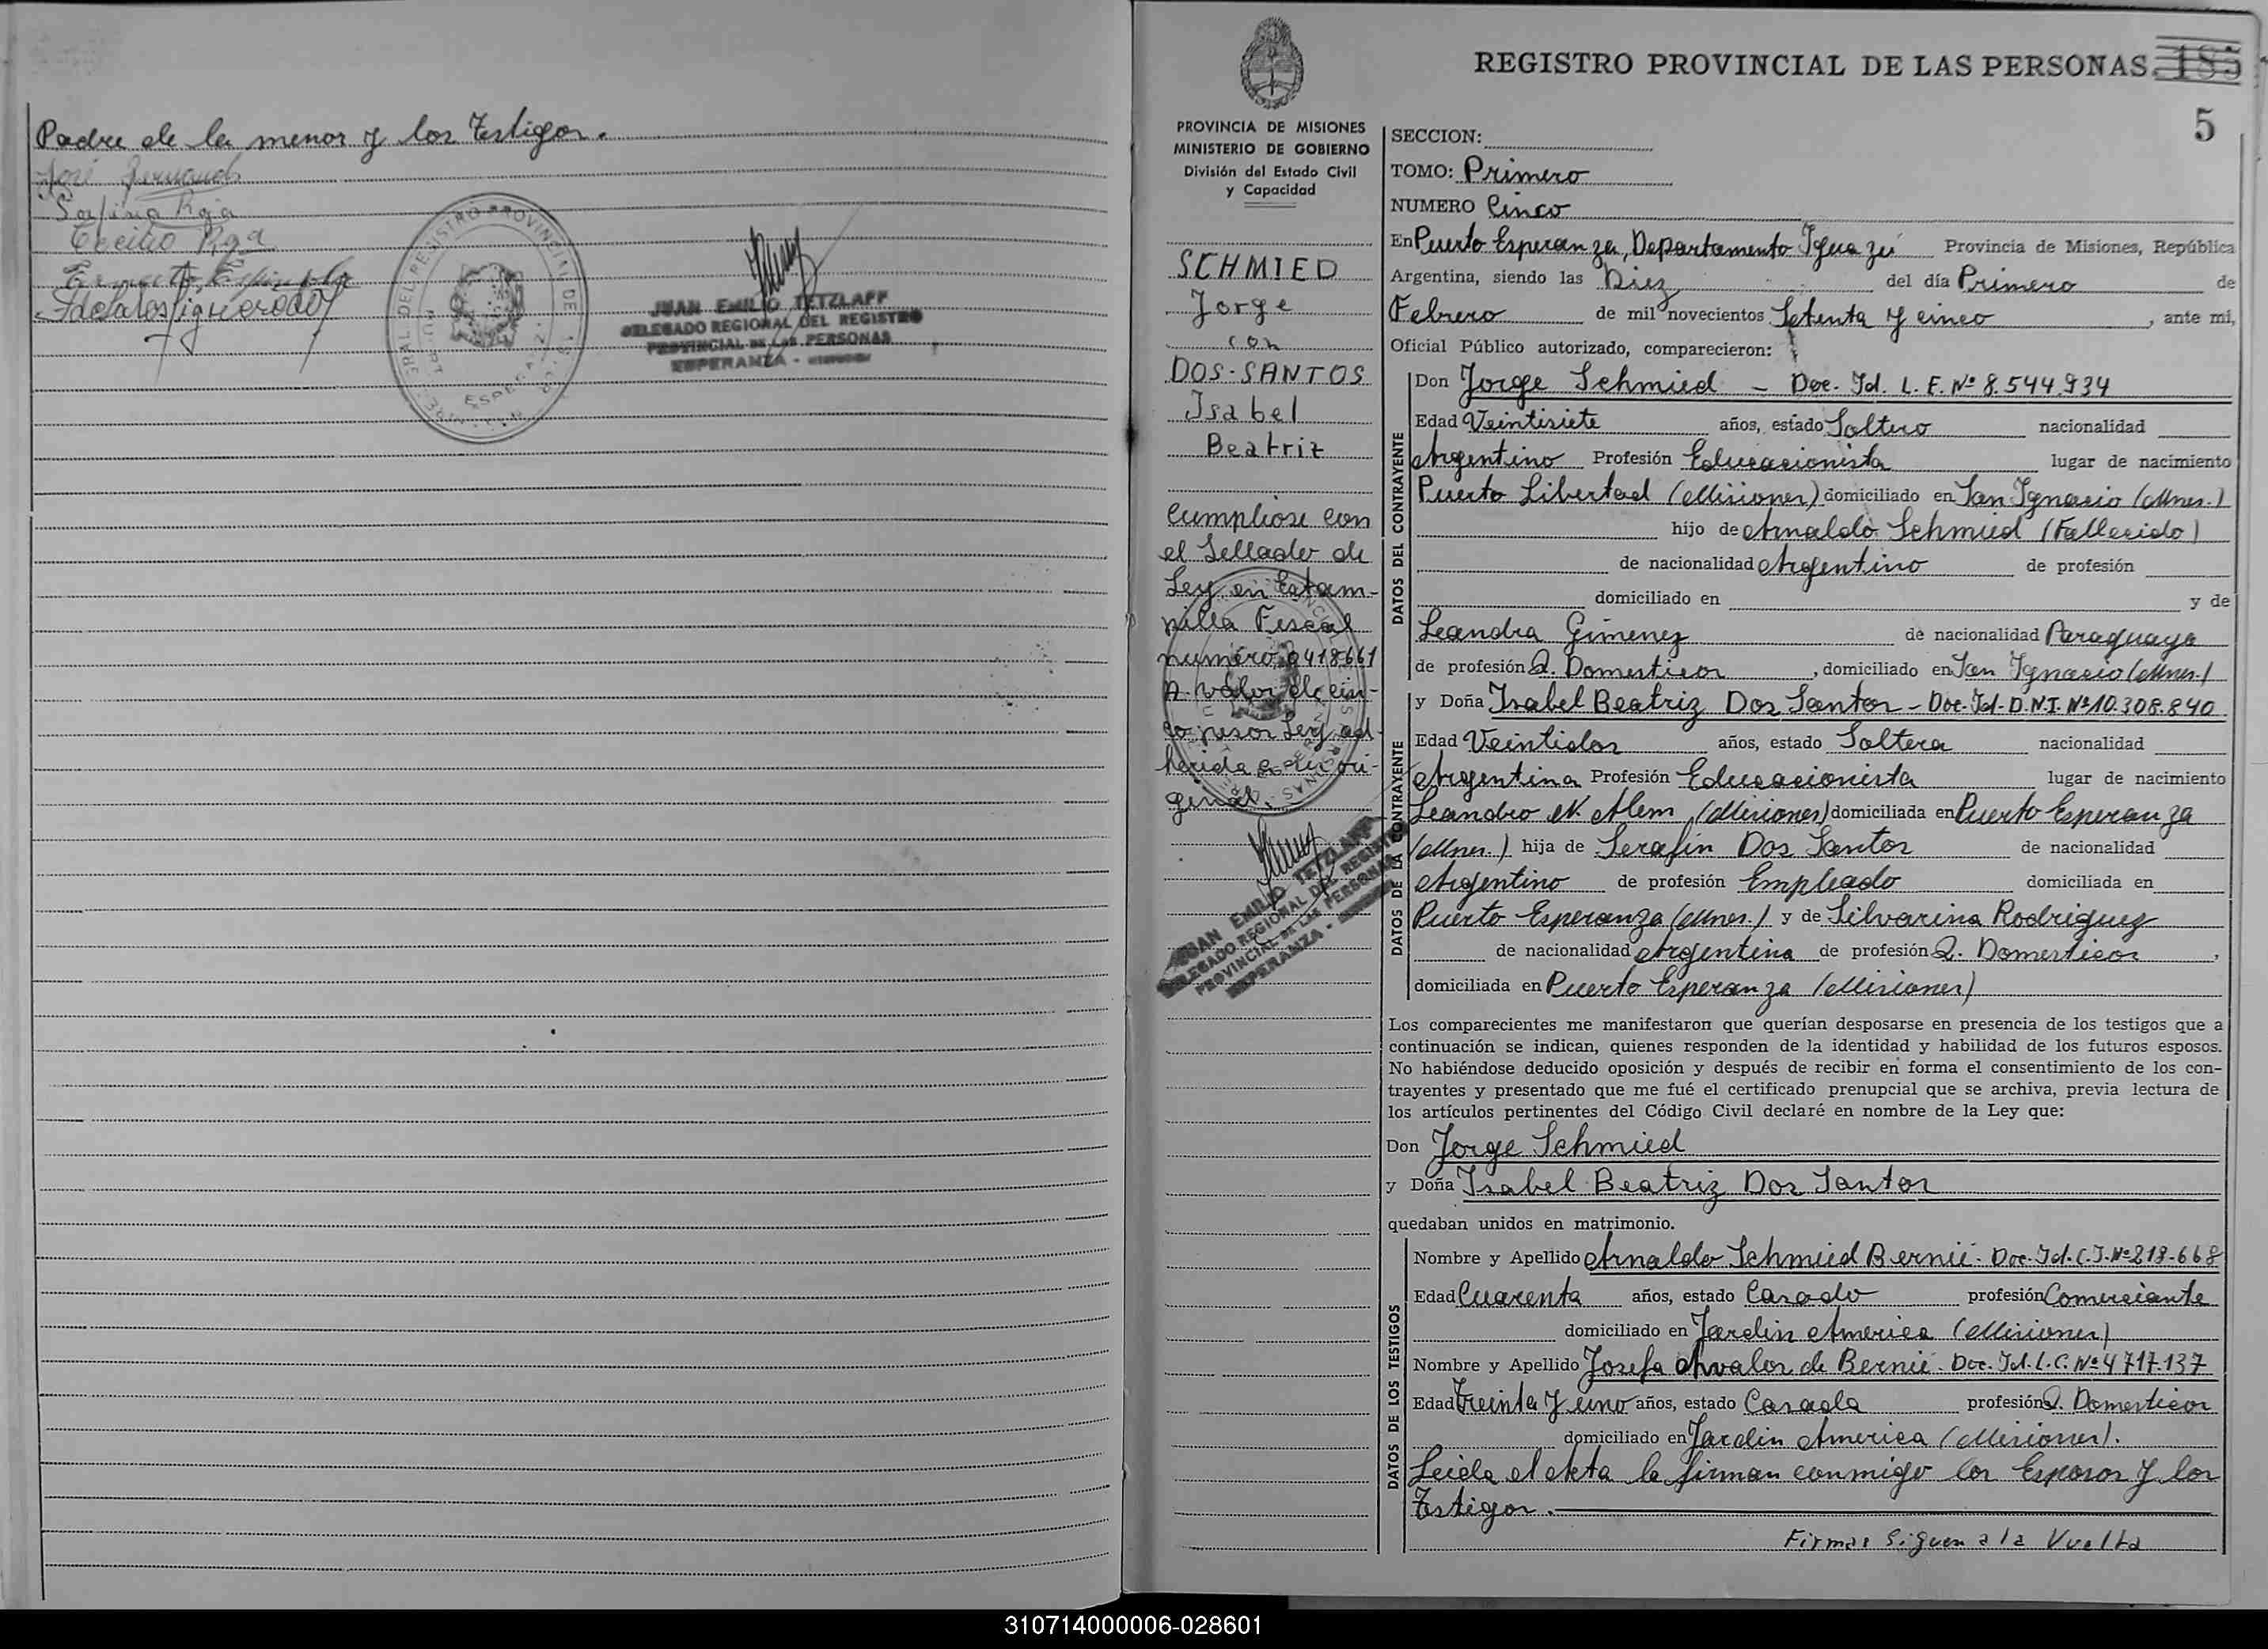 Padre de la menor y los Testigos.
José
Rga
Cecilio Rga
JUAN EMILIO TETZLAFF
DELEGADO REGIONAL DEL REGISTRO
PROVINCIAL DE LAS PERSONAS
ESPERANZA -
REGISTRO PROVINCIAL DE LAS PERSONAS 185
5
PROVINCIA DE MISIONES
MINISTERIO DE GOBIERNO
División del Estado Civil
y Capacidad
SCHMIED
Jorge
con
DOS-SANTOS
Isabel
Beatriz
Cumpliose con
el Sellado de
Ley en Estam-
pilla Fiscal
numero 0418661
A valor de cin-
co pesos Ley ad-
herida a su ori-
ginal.
JUAN EMILIO TETZLAFF
DELEGADO REGIONAL DEL REGISTRO
PROVINCIAL DE LAS PERSONAS
ESPERANZA -
SECCION:
TOMO: Primero
NUMERO Cinco
En Puerto Esperanza, Departamento Iguazú Provincia de Misiones, República
Argentina, siendo las Diez del día Primero de
Febrero de mil novecientos Setenta y cinco, ante mí,
Oficial Público autorizado, comparecieron:
DATOS DEL CONTRAYENTE
Don Jorge Schmied - Doc. Id. L. E. Nº 8.544.934
Edad Veintisiete años, estado Soltero nacionalidad
Argentino Profesión Educacionista lugar de nacimiento
Puerto Libertad (Misiones) domiciliado en San Ignacio (Mnes.)
hijo de Arnaldo Schmied (Fallecido)
de nacionalidad Argentino de profesión
domiciliado en y de
Leandra Gimenez de nacionalidad Paraguaya
de profesión Q. Domesticos, domiciliado en San Ignacio (Mnes.)
DATOS DE LA CONTRAYENTE
y Doña Isabel Beatriz Dos Santos - Doc. Id. D.N.I. Nº 10.308.840
Edad Veintidos años, estado Soltera nacionalidad
Argentina Profesión Educacionista lugar de nacimiento
Leandro N. Alem (Misiones) domiciliada en Puerto Esperanza
(Mnes.) hija de Serafin Dos Santos de nacionalidad
Argentino de profesión Empleado domiciliada en
Puerto Esperanza (Mnes.) y de Silvarina Rodriguez
de nacionalidad Argentina de profesión Q. Domesticos,
domiciliada en Puerto Esperanza (Misiones)
Los comparecientes me manifestaron que querían desposarse en presencia de los testigos que a
continuación se indican, quienes responden de la identidad y habilidad de los futuros esposos.
No habiéndose deducido oposición y después de recibir en forma el consentimiento de los con-
trayentes y presentado que me fué el certificado prenupcial que se archiva, previa lectura de
los artículos pertinentes del Código Civil declaré en nombre de la Ley que:
Don Jorge Schmied
y Doña Isabel Beatriz Dos Santos
quedaban unidos en matrimonio.
DATOS DE LOS TESTIGOS
Nombre y Apellido Arnaldo Schmied Bernié - Doc. Id. C.I. Nº 218.668
Edad Cuarenta años, estado Casado profesión Comerciante
domiciliado en Jardin America (Misiones)
Nombre y Apellido Josefa Avalos de Bernié - Doc. Id. L.C. Nº 4717.137
Edad Treinta y uno años, estado Casada profesión Q. Domesticos
domiciliado en Jardin America (Misiones).
Leida el Acta la firman conmigo los Esposos y los
Testigos.
Firmas Siguen a la Vuelta
310714000006-028601